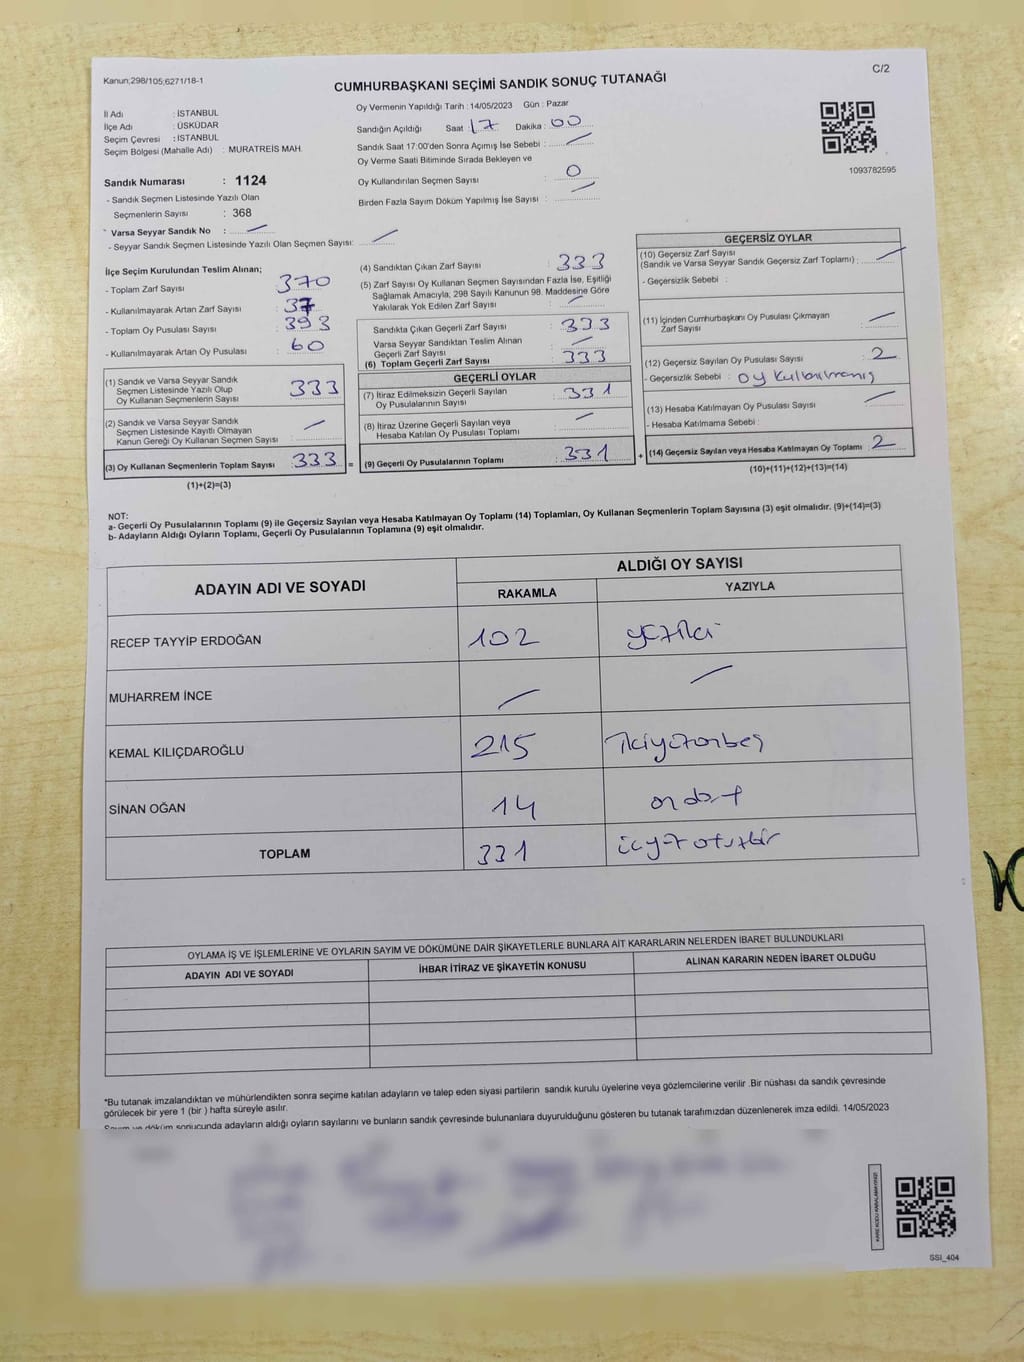 Kanun;298/105;6271/18-1
C/2
CUMHURBAŞKANI SEÇİMİ SANDIK SONUÇ TUTANAĞI
İl Adı : İSTANBUL
İlçe Adı : ÜSKÜDAR
Seçim Çevresi : İSTANBUL
Seçim Bölgesi (Mahalle Adı) : MURATREİS MAH.
Sandık Numarası : 1124
- Sandık Seçmen Listesinde Yazılı Olan
Seçmenlerin Sayısı : 368
* Varsa Seyyar Sandık No :
- Seyyar Sandık Seçmen Listesinde Yazılı Olan Seçmen Sayısı:
Oy Vermenin Yapıldığı Tarih : 14/05/2023 Gün : Pazar
Sandığın Açıldığı Saat 17 Dakika : 00
Sandık Saat 17:00'den Sonra Açımış İse Sebebi :
Oy Verme Saati Bitiminde Sırada Bekleyen ve
Oy Kullandırılan Seçmen Sayısı : 0
Birden Fazla Sayım Döküm Yapılmış İse Sayısı :
1093782595
İlçe Seçim Kurulundan Teslim Alınan;
- Toplam Zarf Sayısı : 370
- Kullanılmayarak Artan Zarf Sayısı : 37
- Toplam Oy Pusulası Sayısı : 393
- Kullanılmayarak Artan Oy Pusulası : 60
(1) Sandık ve Varsa Seyyar Sandık
Seçmen Listesinde Yazılı Olup
Oy Kullanan Seçmenlerin Sayısı : 333
(2) Sandık ve Varsa Seyyar Sandık
Seçmen Listesinde Kayıtlı Olmayan
Kanun Gereği Oy Kullanan Seçmen Sayısı :
(3) Oy Kullanan Seçmenlerin Toplam Sayısı : 333 =
(1)+(2)=(3)
(4) Sandıktan Çıkan Zarf Sayısı : 333
(5) Zarf Sayısı Oy Kullanan Seçmen Sayısından Fazla İse, Eşitliği
Sağlamak Amacıyla, 298 Sayılı Kanunun 98. Maddesine Göre
Yakılarak Yok Edilen Zarf Sayısı :
Sandıkta Çıkan Geçerli Zarf Sayısı : 333
Varsa Seyyar Sandıktan Teslim Alınan
Geçerli Zarf Sayısı :
(6) Toplam Geçerli Zarf Sayısı : 333
GEÇERLİ OYLAR
(7) İtiraz Edilmeksizin Geçerli Sayılan
Oy Pusulalarının Sayısı : 331
(8) İtiraz Üzerine Geçerli Sayılan veya
Hesaba Katılan Oy Pusulası Toplamı :
(9) Geçerli Oy Pusulalarının Toplamı : 331 +
GEÇERSİZ OYLAR
(10) Geçersiz Zarf Sayısı
(Sandık ve Varsa Seyyar Sandık Geçersiz Zarf Toplamı) :
- Geçersizlik Sebebi :
(11) İçinden Cumhurbaşkanı Oy Pusulası Çıkmayan
Zarf Sayısı :
(12) Geçersiz Sayılan Oy Pusulası Sayısı : 2
- Geçersizlik Sebebi : oy kullanılmamış
(13) Hesaba Katılmayan Oy Pusulası Sayısı :
- Hesaba Katılmama Sebebi :
(14) Geçersiz Sayılan veya Hesaba Katılmayan Oy Toplamı : 2
(10)+(11)+(12)+(13)=(14)
NOT:
a- Geçerli Oy Pusulalarının Toplamı (9) ile Geçersiz Sayılan veya Hesaba Katılmayan Oy Toplamı (14) Toplamları, Oy Kullanan Seçmenlerin Toplam Sayısına (3) eşit olmalıdır. (9)+(14)=(3)
b- Adayların Aldığı Oyların Toplamı, Geçerli Oy Pusulalarının Toplamına (9) eşit olmalıdır.
ADAYIN ADI VE SOYADI
ALDIĞI OY SAYISI
RAKAMLA YAZIYLA
RECEP TAYYİP ERDOĞAN 102 yüziki
MUHARREM İNCE
KEMAL KILIÇDAROĞLU 215 ikiyüzonbeş
SİNAN OĞAN 14 ondört
TOPLAM 331 üçyüzotuzbir
OYLAMA İŞ VE İŞLEMLERİNE VE OYLARIN SAYIM VE DÖKÜMÜNE DAİR ŞİKAYETLERLE BUNLARA AİT KARARLARIN NELERDEN İBARET BULUNDUKLARI
ADAYIN ADI VE SOYADI İHBAR İTİRAZ VE ŞİKAYETİN KONUSU ALINAN KARARIN NEDEN İBARET OLDUĞU
*Bu tutanak imzalandıktan ve mühürlendikten sonra seçime katılan adayların ve talep eden siyasi partilerin sandık kurulu üyelerine veya gözlemcilerine verilir .Bir nüshası da sandık çevresinde
görülecek bir yere 1 (bir ) hafta süreyle asılır.
Sayım ve döküm sonucunda adayların aldığı oyların sayılarını ve bunların sandık çevresinde bulunanlara duyurulduğunu gösteren bu tutanak tarafımızdan düzenlenerek imza edildi. 14/05/2023
KARE KODU KARALAMAYINIZ!
SSI_404